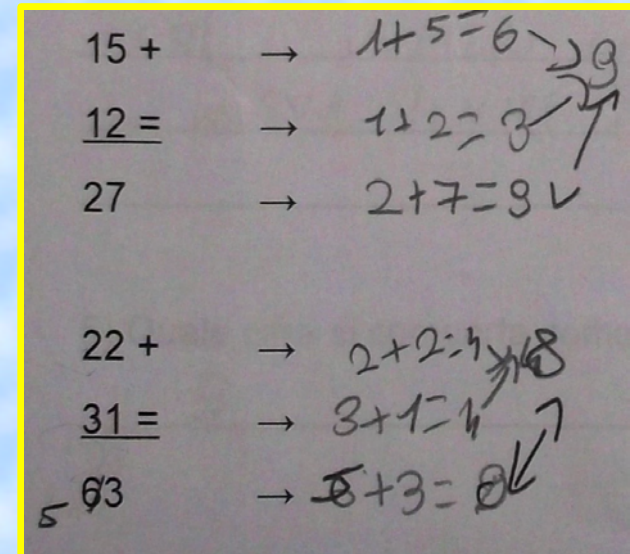 15 + → 1+5=6 9
12 = → 1+2=3
27 → 2+7=9
22 + → 2+2=4 8
31 = → 3+1=4
5 63 → 5+3=8